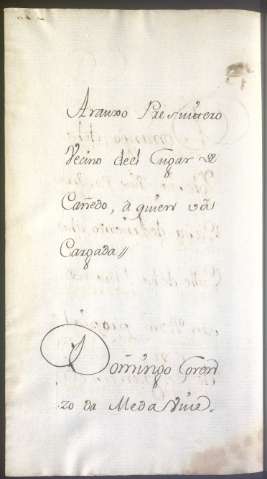 Arauxo Presvitero
Vecino deel Lugar de
Cañedo, â quien vâ
Cargada //
Domingo Coren
zo da Meda